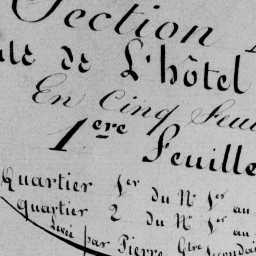 Section
de L'hôtel
En Cinq Feui
1ere Feuille
Quartier 1er du No 1er au
Quartier 2 du No 1er au
Levée par Pierre Gtre Secondai